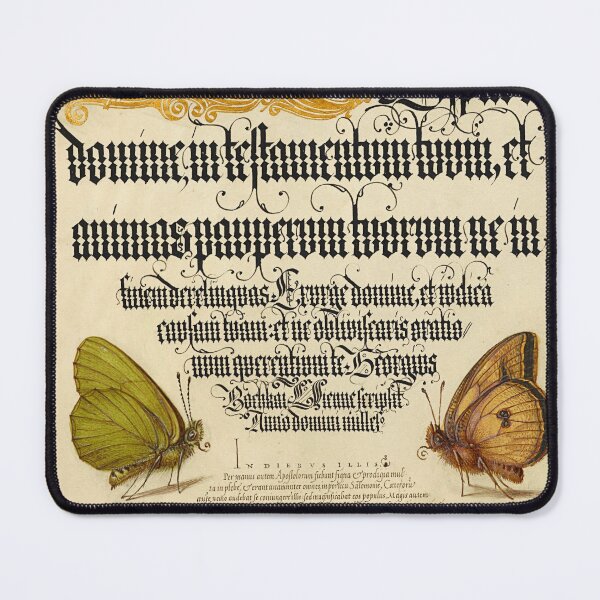 domine, in testamentum tuum, et
animas pauperum tuorum ne in
finem derelinquas. Exurge domine, et iudica
causam tuam: et ne obliviscaris oratio//
num querentium te. Georgius
Bochkai Vienne scripsit
Anno domini milles:
IN DIEBVS ILLIS.
Per manus autem Apostolorum fiebant signa & prodigia mul
ta in plebe, & erant unanimiter omnes in porticu Salomonis, Cæterorū
nemo audebat se coniungere illis: sed magnificabat eos populus. Magis autem